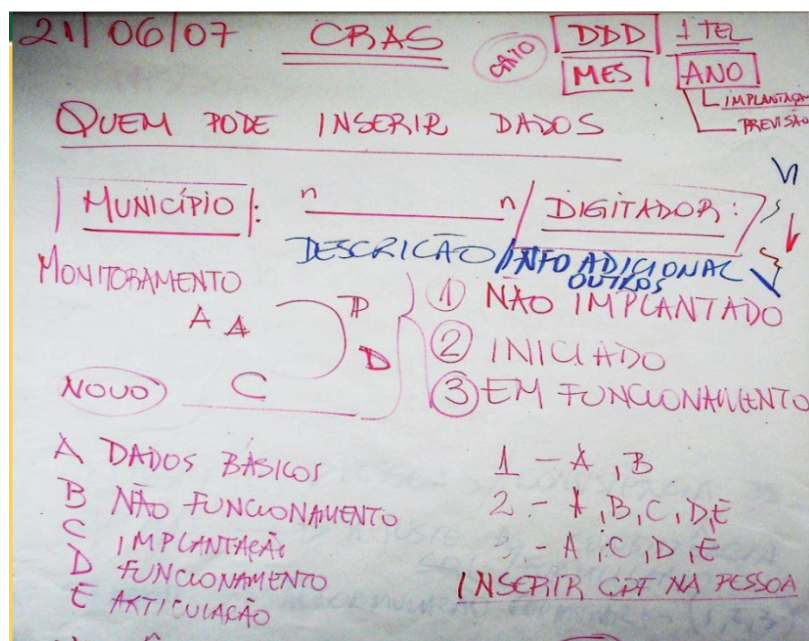 21/06/07 CRAS DDD 1 TEL
MES ANO
IMPLANTAÇÃO
PREVISÃO
QUEM PODE INSERIR DADOS
MUNICÍPIO: n n DIGITADOR:
DESCRIÇÃO / INFO ADICIONAL
OUTROS
MONITORAMENTO
A A P
D
C
NOVO
1 NÃO IMPLANTADO
2 INICIADO
3 EM FUNCIONAMENTO
A DADOS BÁSICOS
B NÃO FUNCIONAMENTO
C IMPLANTAÇÃO
D FUNCIONAMENTO
E ARTICULAÇÃO
1 - A, B
2 - A, B, C, D, E
3 - A, C, D, E
INSERIR CPF NA PESSOA